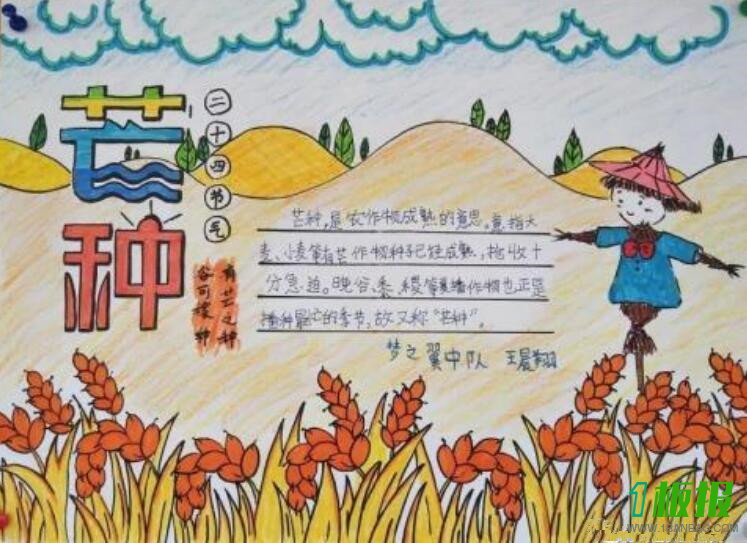 芒种
二十四节气
有芒之种
谷可稼种
芒种,是农作物成熟的意思。意指大
麦、小麦等有芒作物种子已经成熟,抢收十
分急迫。晚谷、黍、稷等夏播作物也正是
播种最忙的季节,故又称"芒种"。
梦之翼中队 王晨翔
1板报